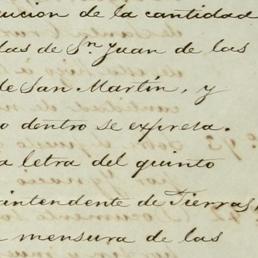 ucion de la cantidad
das de Sn Juan de las
de San Martin, y
o dentro se expresa.
a letra del quinto
intendente de Tierras,
a mensura de las